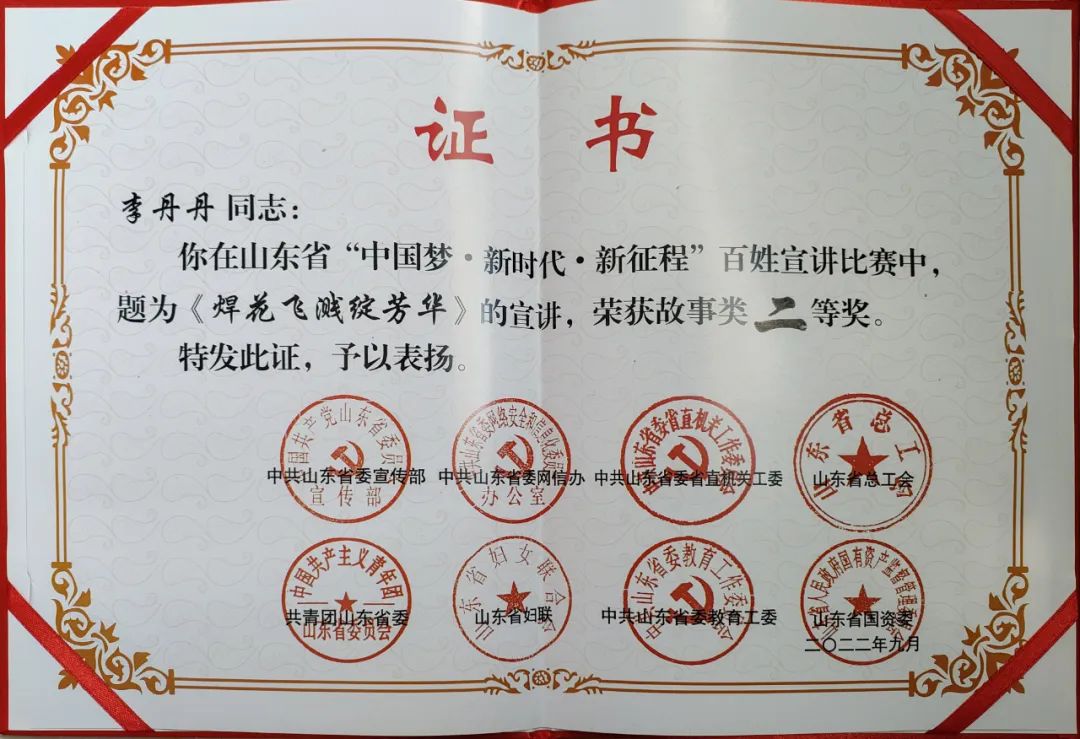 证书
李丹丹 同志：
你在山东省“中国梦·新时代·新征程”百姓宣讲比赛中，
题为《焊花飞溅绽芳华》的宣讲，荣获故事类 二 等奖。
特发此证，予以表扬。
中国共产党山东省委员会
宣传部
中共山东省委宣传部
中共山东省委网络安全和信息化委员会
办公室
中共山东省委网信办
中共山东省委省直机关工作委员会
中共山东省委省直机关工委
山东省总工会
山东省总工会
中国共产主义青年团
山东省委员会
共青团山东省委
山东省妇女联合会
山东省妇联
中共山东省委教育工作委员会
中共山东省委教育工委
山东省人民政府国有资产监督管理委员会
山东省国资委
二〇二二年九月